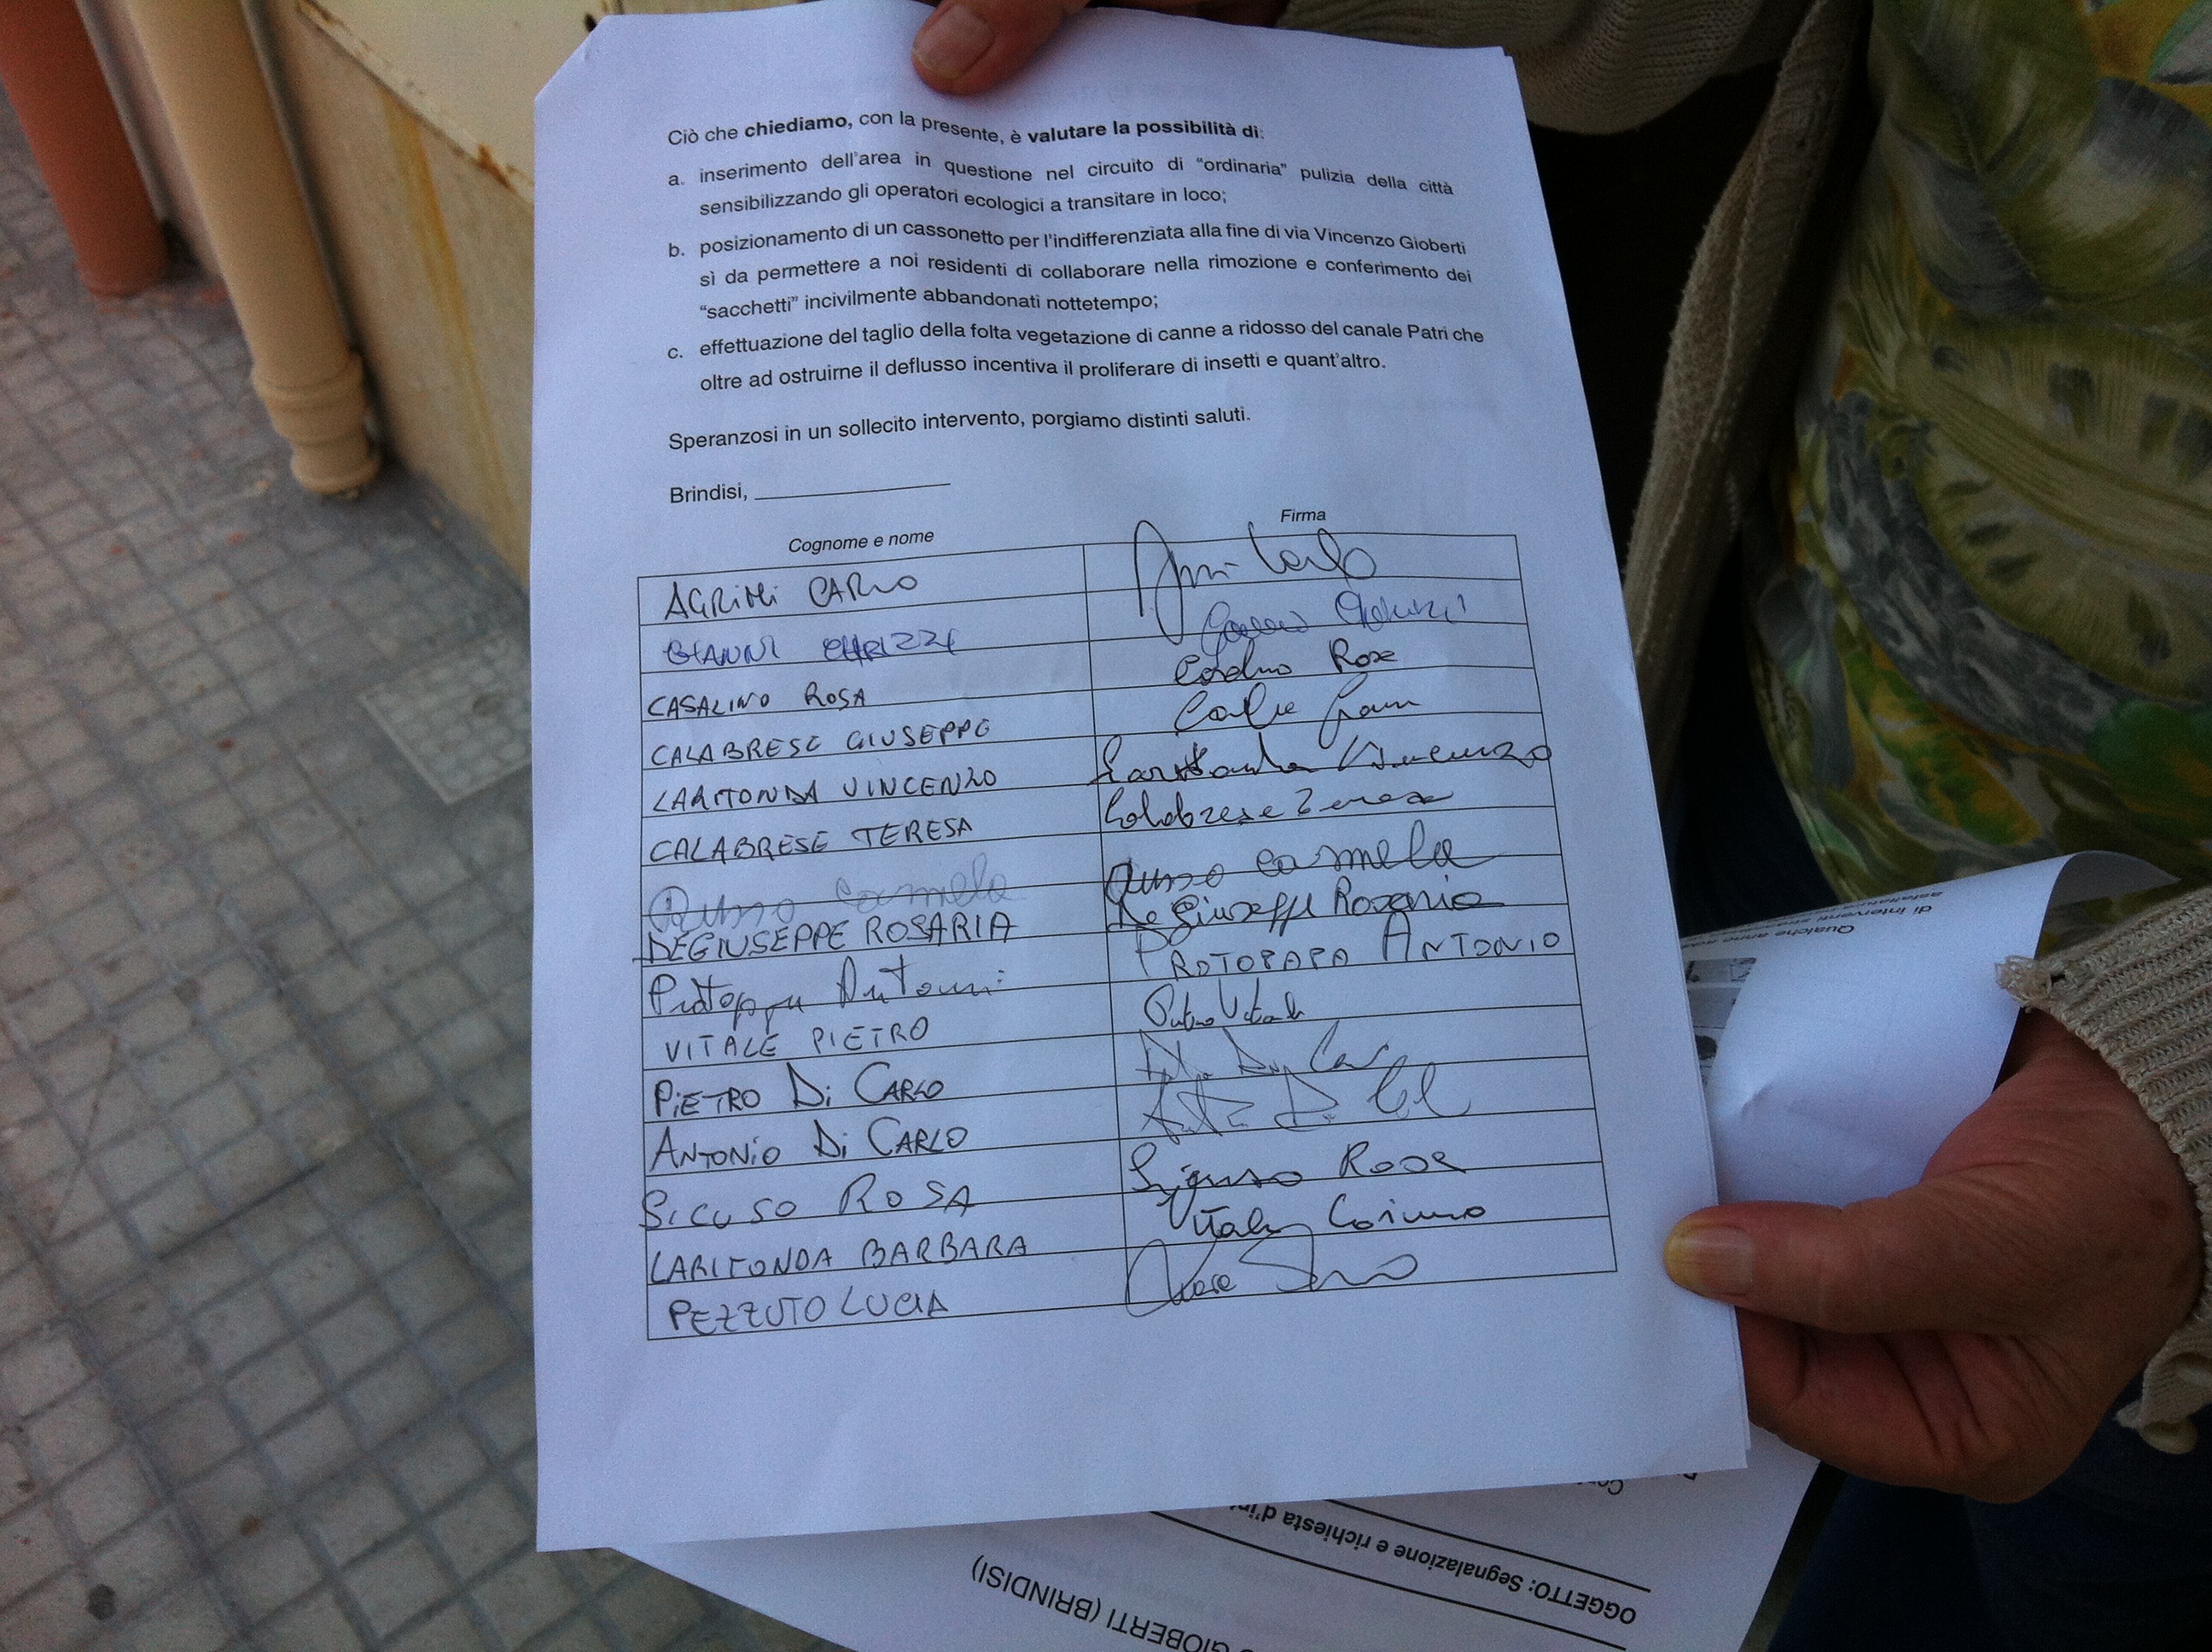 Ciò che chiediamo, con la presente, è valutare la possibilità di:
a. inserimento dell'area in questione nel circuito di "ordinaria" pulizia della città
sensibilizzando gli operatori ecologici a transitare in loco;
b. posizionamento di un cassonetto per l'indifferenziata alla fine di via Vincenzo Gioberti
sì da permettere a noi residenti di collaborare nella rimozione e conferimento dei
"sacchetti" incivilmente abbandonati nottetempo;
c. effettuazione del taglio della folta vegetazione di canne a ridosso del canale Patri che
oltre ad ostruirne il deflusso incentiva il proliferare di insetti e quant'altro.
Speranzosi in un sollecito intervento, porgiamo distinti saluti.
Brindisi,
Cognome e nome Firma
AGRIMI CARLO
GIANNI
CASALINO ROSA Rosa
CALABRESE GIUSEPPE
LARITONDA VINCENZO Laritonda Vincenzo
CALABRESE TERESA Calabrese Teresa
Russo Carmela Russo Carmela
DEGIUSEPPE ROSARIA De Giuseppe Rosaria
Antonio PROTOPAPA ANTONIO
VITALE PIETRO Pietro Vitale
PIETRO Di CARLO
ANTONIO Di CARLO
SICUSO ROSA Rosa
LARITONDA BARBARA Vitale Cosimo
PEZZUTO LUCIA
di interventi
Qualche anno
OGGETTO: Segnalazione e richiesta d'in
GIOBERTI (BRINDISI)